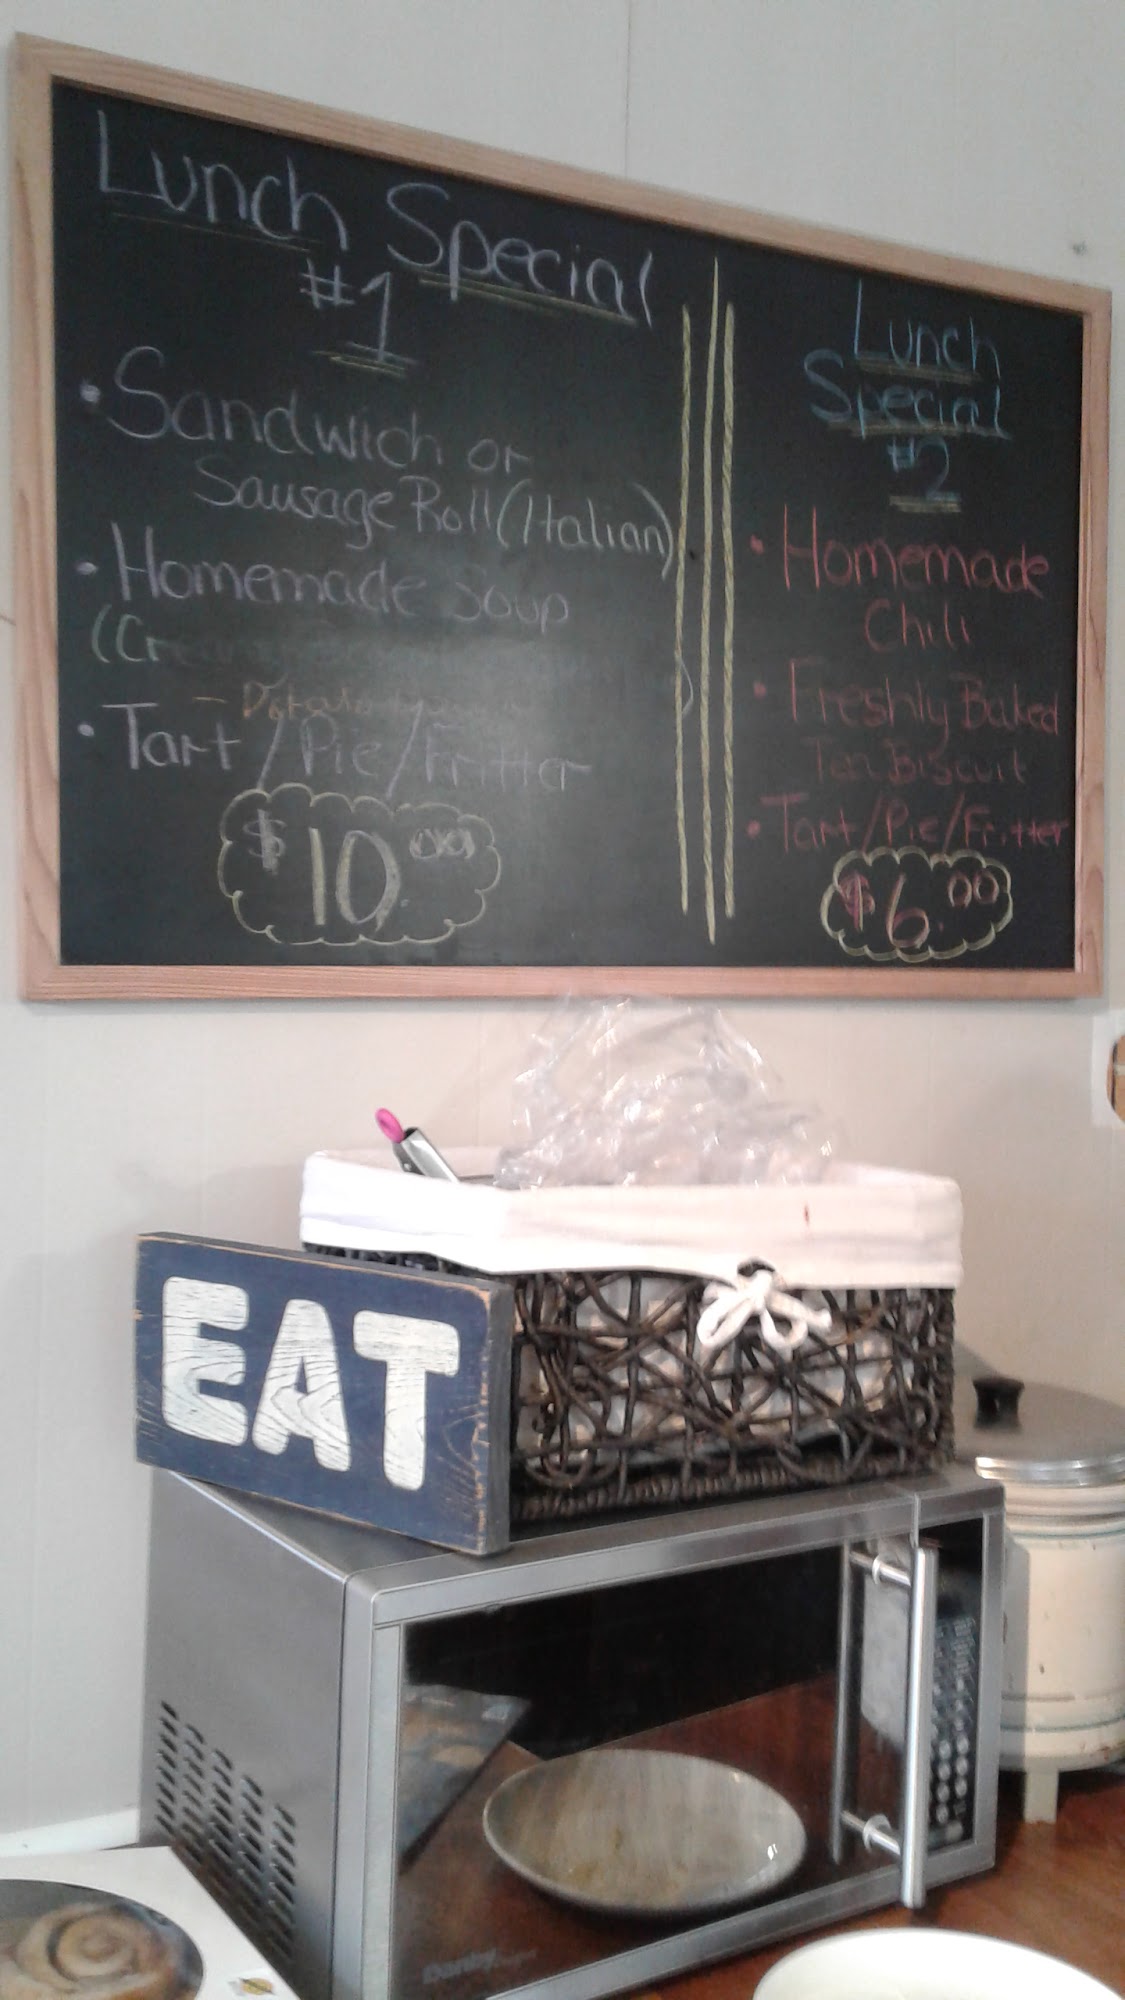 Lunch Special
#1
• Sandwich or
Sausage Roll (Italian)
• Homemade Soup
• Tart / Pie / Fritter
$10.00
Lunch
Special
#2
• Homemade
Chili
• Freshly Baked
Tea Biscuit
• Tart / Pie / Fritter
$6.00
EAT
Danby